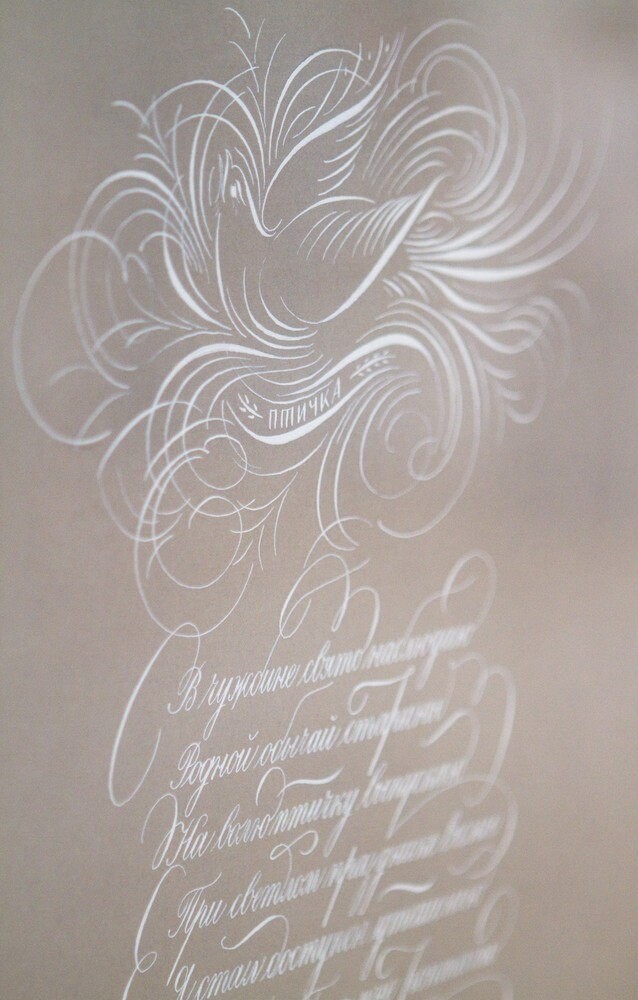 ПТИЧКА
В чужбине свято наблюдаю
Родной обычай старины
На волю птичку выпускаю
При светлом празднике весны
Я стал доступен утешенью